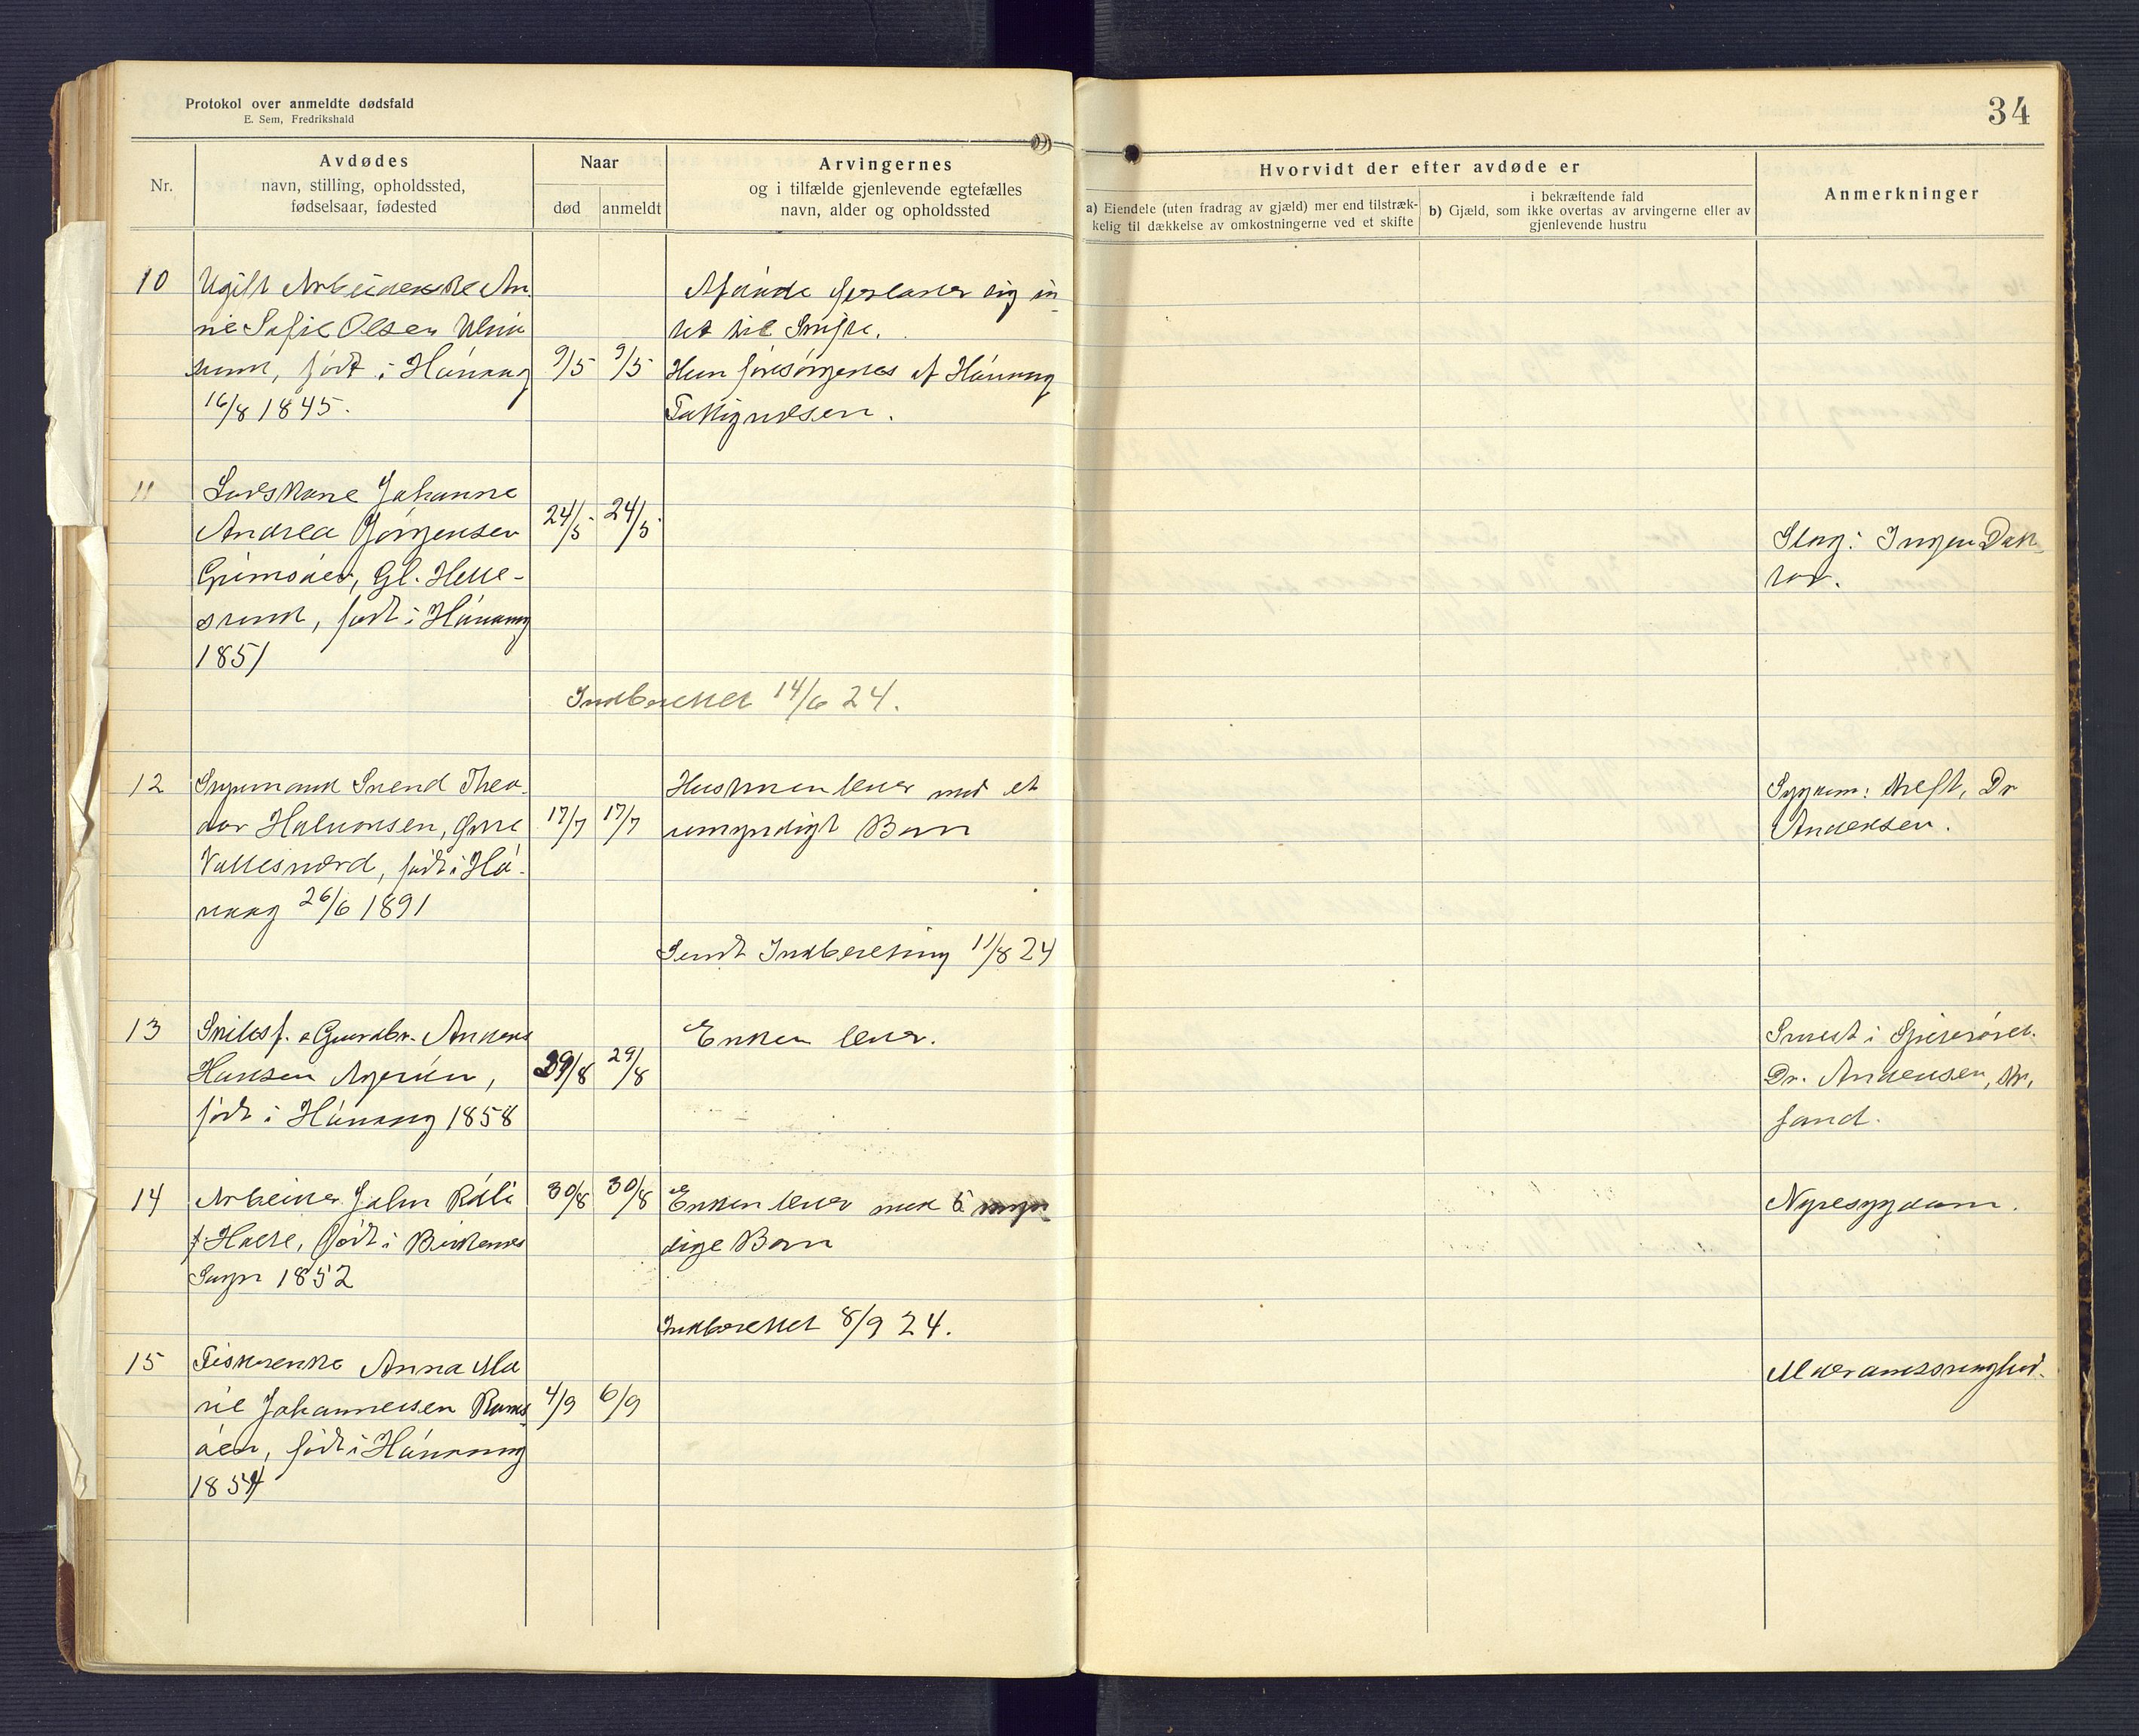 Protokol over anmeldte dødsfald
E. Sem, Fredrikshald
34
Nr.
Avdødes
navn, stilling, opholdssted,
fødselsaar, fødested
Naar
død
anmeldt
Arvingernes
og i tilfælde gjenlevende egtefælles
navn, alder og opholdssted
Hvorvidt der efter avdøde er
a) Eiendele (uten fradrag av gjæld) mer end tilstræk-
kelig til dækkelse av omkostningerne ved et skifte
i bekræftende fald
b) Gjæld, som ikke overtas av arvingerne eller av
gjenlevende hustru
Anmerkninger
10
Ugift Arbeiderske An
nie Sofie Olsen Ulvø
sund, født i Høivaag
16/8 1845.
9/5
9/5
Afdøde efterlater sig in
tet til Skifte.
Hun forsørgedes af Høivaag
Fattigvæsen.
11
Andrea Jørgensen
Grimsøien, Gl. Helle-
sund, født i Høivaag
1851
24/5
24/5
Slag: Ingen Dok
tor.
Indberettet 14/6 24.
12
Svend Theo
dor Halvorsen,
Vallesværd, født i Hø-
vaag 26/6 1891
17/7
17/7
Hustruen lever med et
umyndigt Barn
Sygdom: Kreft, Dr
Andersen.
Sendt Indberetning 11/8 24
13
Anders
Hansen Ageröen,
født i Høivaag 1858
29/8
29/8
Enken lever.
i Spiserøret.
Dr. Andersen, Kr.
sand.
14
Arbeider John
født i Birkenes
Sogn 1852
30/8
30/8
Enken lever med 5 myn
dige Barn
Nyresygdom.
Indberettet 8/9 24.
15
Fiskerenke Anna Ma
rie Johannesen Rams
øen, født i Høivaag
1854
4/9
6/9
Alderdomssvaghed.